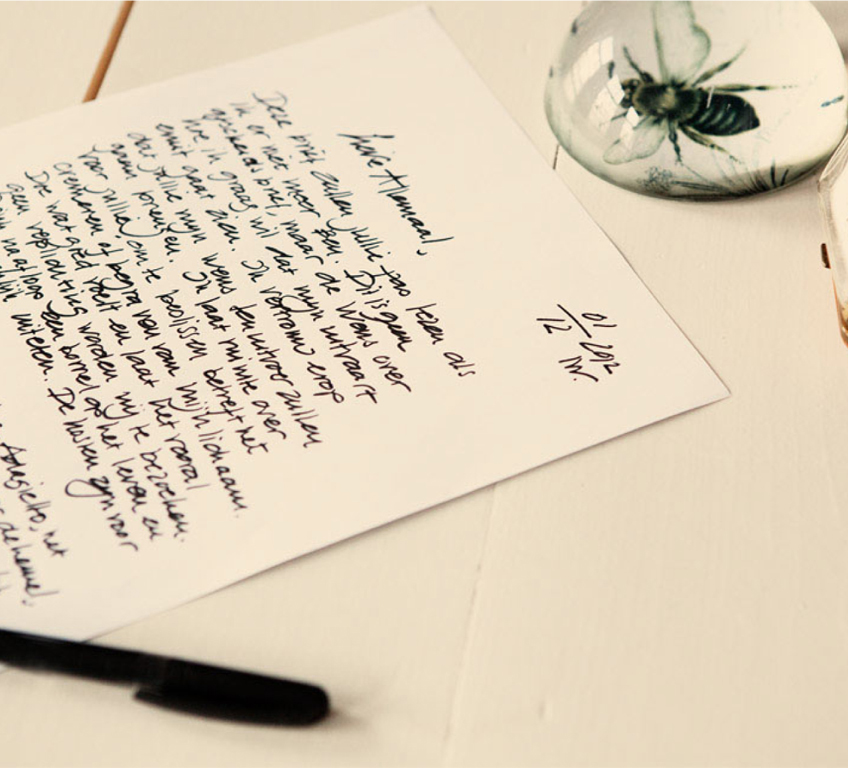 01/12 2012
Lieve Allemaal,
Deze brief zullen jullie pas lezen als
ik er niet meer ben. Dit is geen
afscheidsbrief, maar de wens over
hoe ik graag wil dat mijn uitvaart
eruit gaat zien. Ik vertrouw erop
dat jullie mijn wens ten uitvoer zullen
gaan brengen. Ik laat ruimte over
voor jullie om te beslissen betreft het
cremeren of begraven van mijn lichaam.
Doe wat goed voelt en laat het vooral
geen verplichting worden mij te bezoeken.
na afloop een borrel op het leven en
uiteten. De kosten zijn voor
Adagietto, het
de hemel,